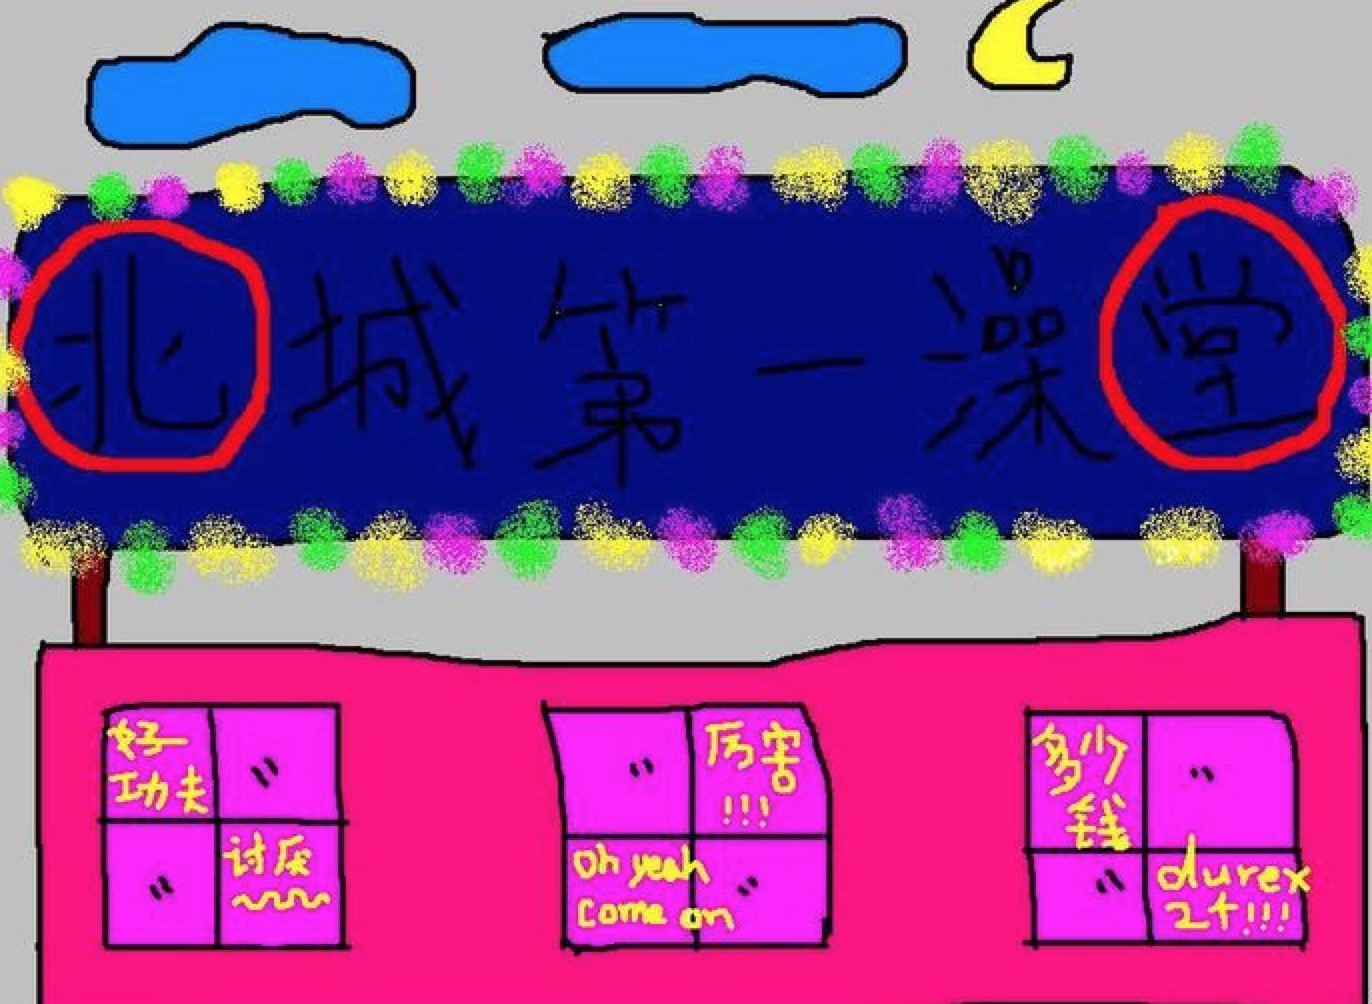 北城第一澡堂
好
功夫
讨厌
厉害
!!!
oh yeah
come on
多少
钱
durex
2个!!!